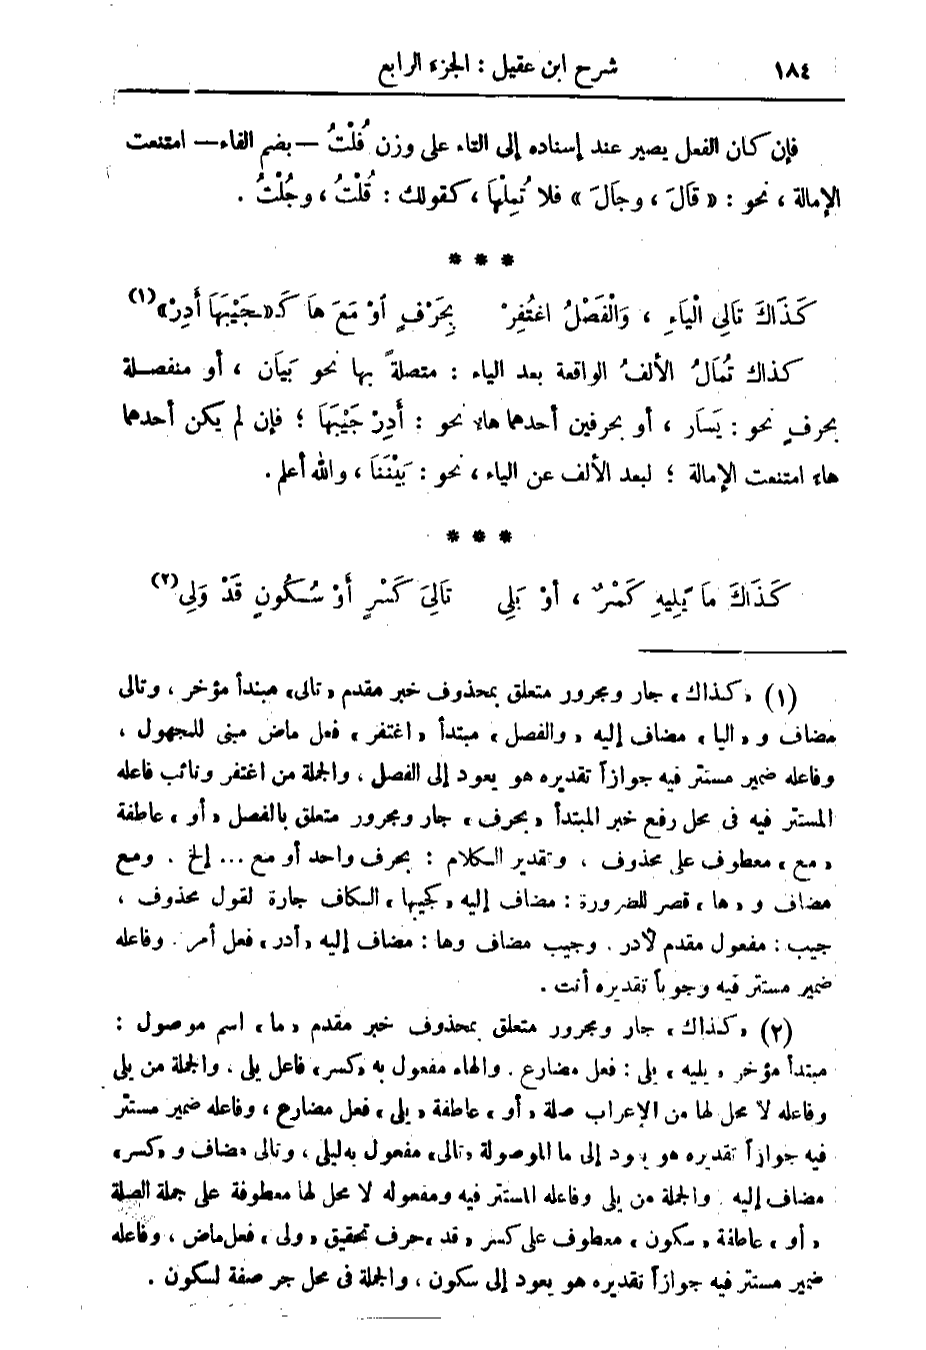 ١٨٤ شرح ابن عقيل : الجزء الرابع
فإن كان الفعل يصير عند إسناده إلى التاء على وزن فُلْتُ — بضم الفاء — امتنعت
الإمالة ، نحو : « قَالَ ، وجَالَ » فلا تُمِلْهَا ، كقولك : قُلْتُ ، وجُلْتُ .
* * *
كَذَاكَ تَالِى الْيَاءِ ، وَالْفَصْلُ اغْتُفِرْ بِحَرْفٍ أوْ مَعَ هَا كَـ«ـجَيْبَهَا أَدِرْ» (١)
كذاك تُمَالُ الألفُ الواقعة بعد الياء : متصلةً بها نحو بَيَان ، أو منفصلة
بحرفٍ نحو : يَسَار ، أو بحرفين أحدهما هاء نحو : أَدِرْ جَيْبَهَا ؛ فإن لم يكن أحدهما
هاء امتنعت الإمالة ؛ لبعد الألف عن الياء ، نحو : بَيْنَنَا ، والله أعلم .
* * *
كَذَاكَ مَا يَلِيهِ كَسْرٌ ، أوْ يَلِي تَالِىَ كَسْرٍ أَوْ سُكُونٍ قَدْ وَلِى (٢)
(١) «كذاك» جار ومجرور متعلق بمحذوف خبر مقدم «تالى» مبتدأ مؤخر ، وتالى
مضاف و «اليا» مضاف إليه «والفصل» مبتدأ «اغتفر» فعل ماض مبنى للمجهول ،
وفاعله ضمير مستتر فيه جوازاً تقديره هو يعود إلى الفصل ، والجملة من اغتفر ونائب فاعله
المستتر فيه فى محل رفع خبر المبتدأ «بحرف» جار ومجرور متعلق بالفصل «أو» عاطفة
«مع» معطوف على محذوف ، وتقدير الكلام : بحرف واحد أو مع ... إلخ . ومع
مضاف و «ها» قصر للضرورة : مضاف إليه «كجيبها» الكاف جارة لقول محذوف ،
جيب : مفعول مقدم لأدر . وجيب مضاف وها : مضاف إليه «أدر» فعل أمر . وفاعله
ضمير مستتر فيه وجوباً تقديره أنت .
(٢) «كذاك» جار ومجرور متعلق بمحذوف خبر مقدم «ما» اسم موصول :
مبتدأ مؤخر «يليه» يلى : فعل مضارع . والهاء مفعول به «كسر» فاعل يلى ، والجملة من يلى
وفاعله لا محل لها من الإعراب صلة «أو» عاطفة «يلى» فعل مضارع ، وفاعله ضمير مستتر
فيه جوازاً تقديره هو يعود إلى ما الموصولة «تالى» مفعول به ليلى ، وتالى مضاف و «كسر»
مضاف إليه والجملة من يلى وفاعله المستتر فيه ومفعوله لا محل لها معطوفة على جملة الصلة
«أو» عاطفة «سكون» معطوف على كسر «قد» حرف تحقيق «ولى» فعل ماض ، وفاعله
ضمير مستتر فيه جوازاً تقديره هو يعود إلى سكون ، والجملة فى محل جر صفة لسكون .